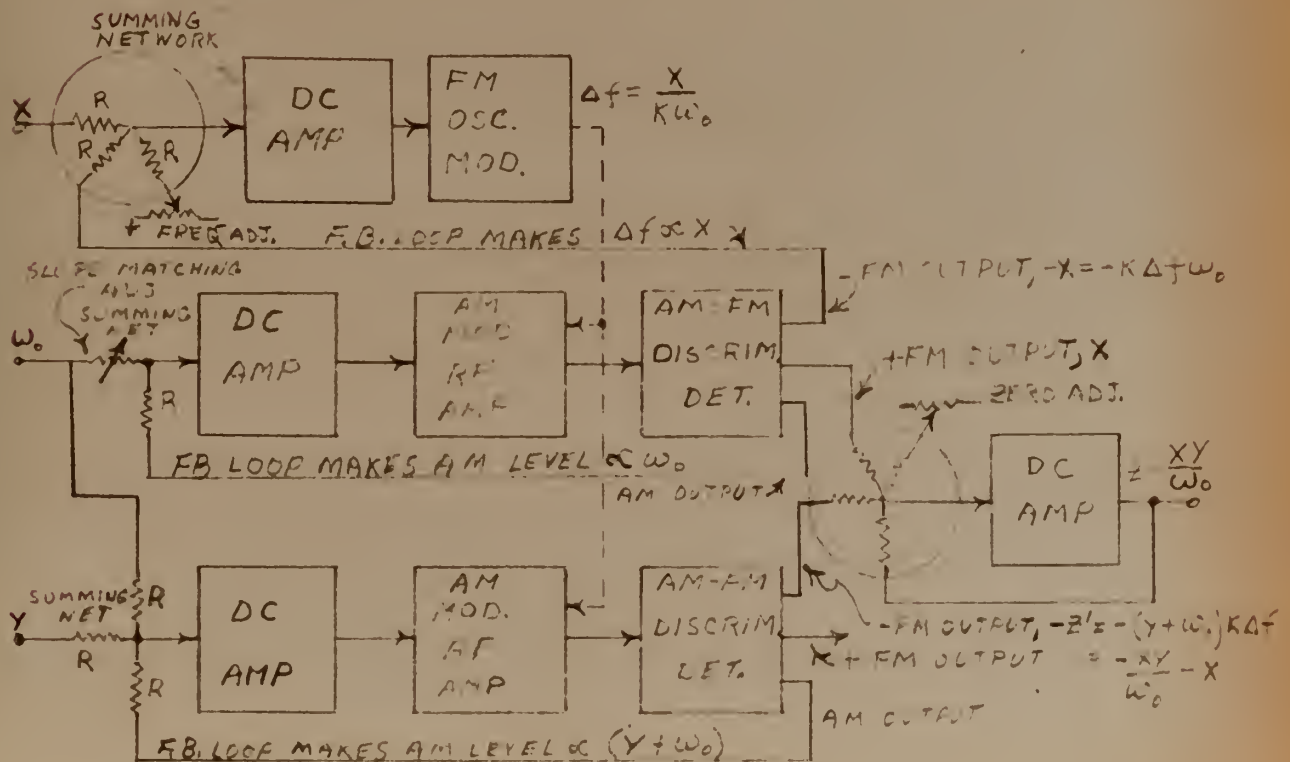 SUMMING
NETWORK
X
R
R
R
DC
AMP
FM
OSC.
MOD.
Δf = X / Kω₀
+ FREQ ADJ.
F.B. LOOP MAKES Δf ∝ X
SLOPE MATCHING
ADJ
SUMMING
NET
ω₀
R
DC
AMP
AM
MOD
RF
AMP
AM-FM
DISCRIM.
DET.
-FM OUTPUT, -X = -KΔfω₀
+FM OUTPUT, X
ZERO ADJ.
F.B. LOOP MAKES AM LEVEL ∝ ω₀
AM OUTPUT
DC
AMP
XY / ω₀
SUMMING
NET
Y
R
R
R
DC
AMP
AM
MOD.
RF
AMP
AM-FM
DISCRIM
DET.
-FM OUTPUT, -Z' = -(Y+ω₀)KΔf
+ FM OUTPUT = -XY / ω₀ - X
AM OUTPUT
F.B. LOOP MAKES AM LEVEL ∝ (Y+ω₀)